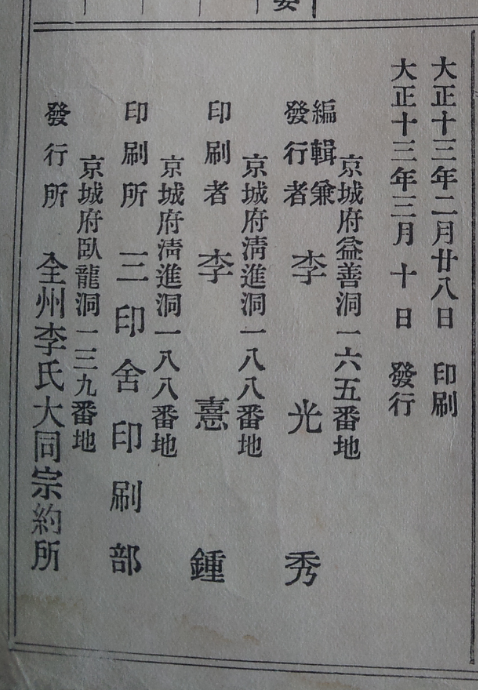 大正十三年二月廿八日 印刷
大正十三年三月十日 發行
京城府益善洞一六五番地
編輯兼
發行者 李光秀
京城府淸進洞一八八番地
印刷者 李憙鍾
京城府淸進洞一八八番地
印刷所 三印舍印刷部
京城府臥龍洞一三九番地
發行所 全州李氏大同宗約所